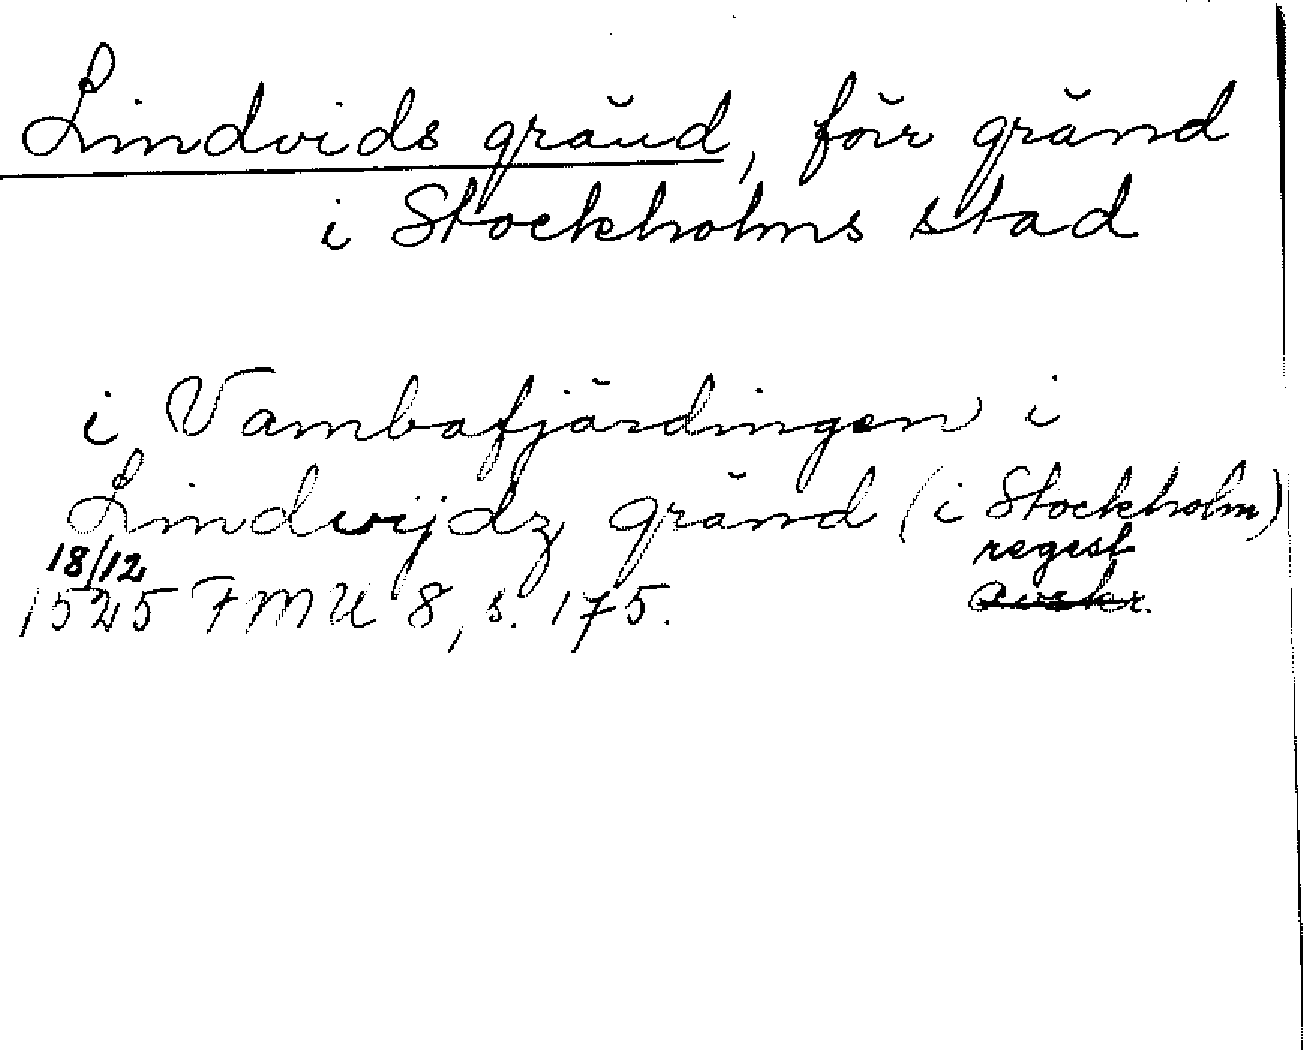 Lindvids gränd, förr gränd
i Stockholms stad
i Vambafjärdingen i
Lindwijdz gränd (i Stockholm)
18/12 regest
1525 FMU 8, s. 175. avskr.